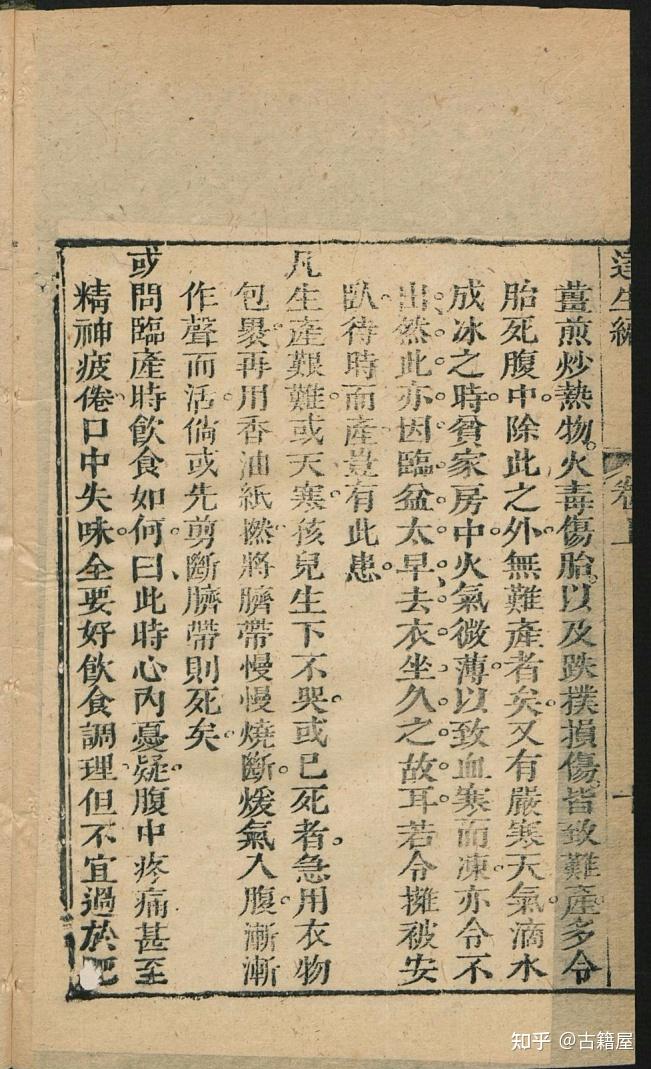 達生編
卷上
薑煎炒熱物。火毒傷胎。以及跌撲損傷。皆致難產。多令
胎死腹中。除此之外。無難產者矣。又有嚴寒天氣。滴水
成冰之時。貧家房中。火氣微薄。以致血寒而凍。亦令不
出。然此亦因臨盆太早。去衣坐久之故耳。若令擁被安
臥。待時而產。豈有此患。
凡生產艱難。或天寒。孩兒生下不哭。或已死者。急用衣物
包裹。再用香油紙撚。將臍帶慢慢燒斷。煖氣入腹。漸漸
作聲而活。倘或先剪斷臍帶。則死矣。
或問臨產時飲食如何。曰、此時心內憂疑。腹中疼痛。甚至
精神疲倦。口中失味。全要好飲食調理。但不宜過於肥
知乎 @古籍屋